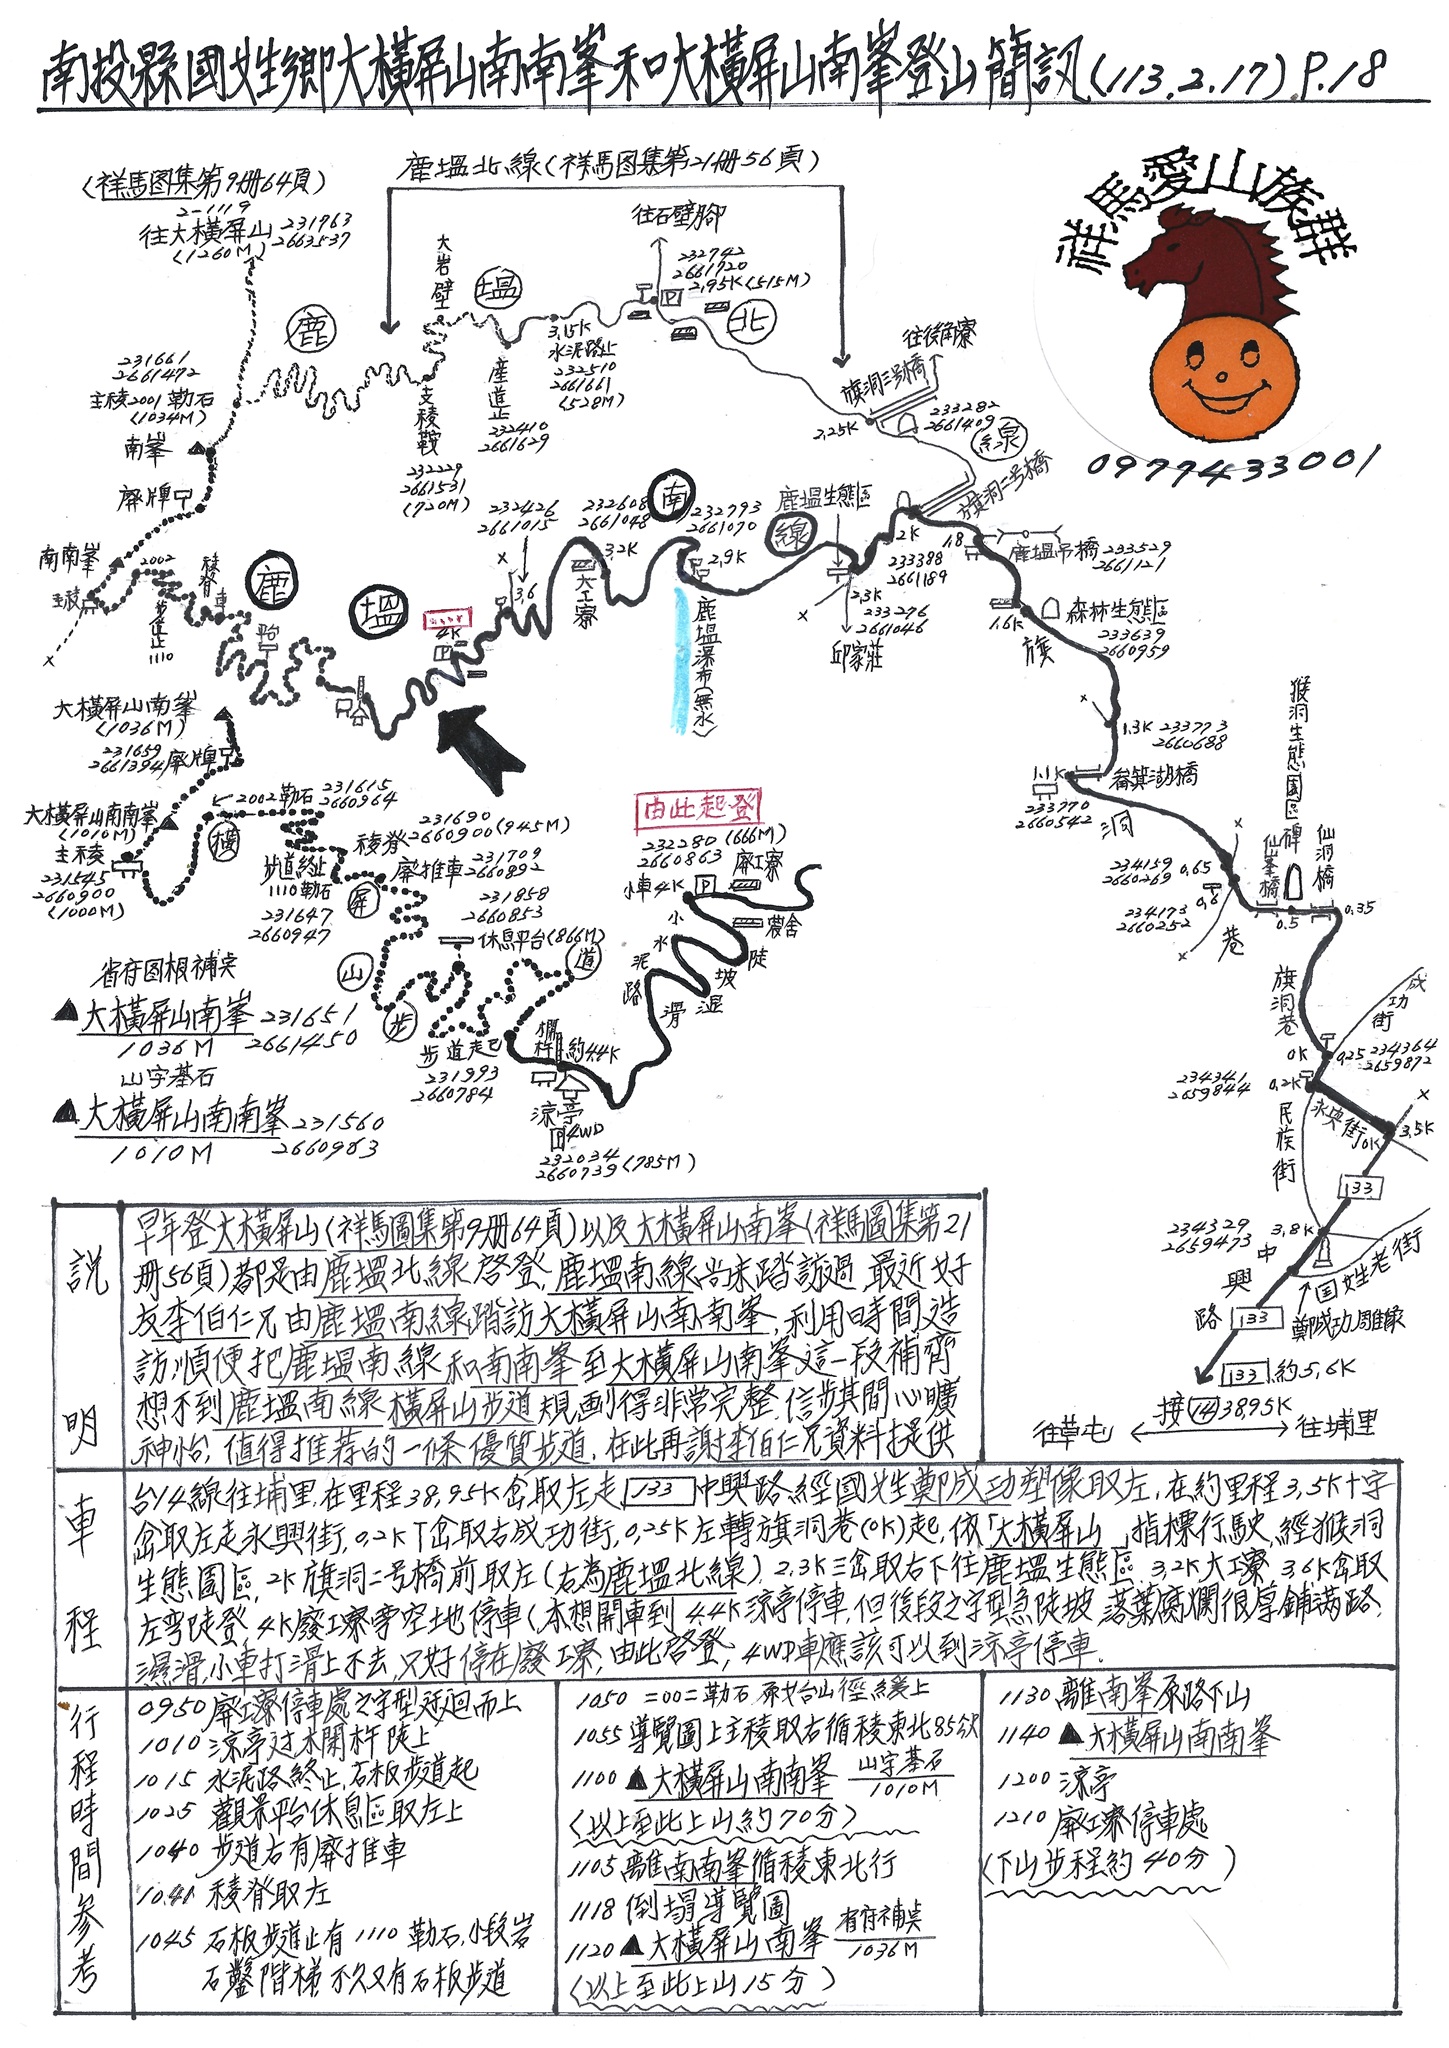 南投縣國姓鄉大橫屏山南南峯和大橫屏山南峯登山簡訊(113.2.17) P.18
(祥馬图集第9册64頁)
2-1119
往大橫屏山 231763
(1260M) 2663537
鹿塭北線(祥馬图集第21册56頁)
往石壁腳
232742
2661720
2.95K(515M)
P
大岩壁
塭
鹿
北
祥馬愛山族群
0977433001
往後角寮
旗洞三号橋
3.15K
水泥路止
232510
2661661
(528M)
產道止
232410
2661629
支稜鞍
232229
2661531
(720M)
231661
2661472
主稜2001勒石
(1034M)
南峯
廢牌
南南峯
主稜
2002
稜脊
車
步道止
1110
2.25K
233282
2661409
線
旗洞二号橋
鹿塭生態區
232426
2661015
232608
2661048
南
232793
2661070
線
3.2K
2.9K
3.6
大工寮
鹿塭瀑布(無水)
2K
233388
2661189
2.3K
233276
2661046
邱家莊
1.8
鹿塭吊橋 233529
2661121
1.6K
森林生態區
233639
2660959
旗
鹿
塭
4K
P
1.3K 233773
2660688
1.1K
畚箕湖橋
233770
2660542
洞
猴洞生態園區碑
仙洞橋
仙峯橋
234159 0.65
2660269
0.6
234173
2660252
0.5
0.35
巷
旗洞巷
成功街
0K
0.25 234364
2659872
234341
2659844
0.2K
永興街
0K
3.5K
民族街
133
234329
2659473
3.8K
中興路
国姓老街
鄭成功雕像
133
133 約5.6K
接 14 38.95K
往草屯
往埔里
大橫屏山南峯
(1036M)
231659
2661394
廢牌
大橫屏山南南峯
(1010M)
主稜
231545
2660900
(1000M)
2002勒石
231615
2660964
橫
231690
2660900(945M)
稜脊
步道終止
1110勒石
231647
2660947
廢推車 231709
2660892
屏
231858
2660853
休息平台(866M)
山
步
道
步道起
231993
2660784
欄杆
約4.4K
涼亭
P 4WD
232034
2660739(785M)
由此起登
232280 (666M)
2660863
小車4K P
廢工寮
農舍
小水泥路
陡坡濕滑
省府图根補点
▲大橫屏山南峯 231651
1036M 2661450
山字基石
▲大橫屏山南南峯 231560
1010M 2660963
說明
早年登大橫屏山(祥馬圖集第9册64頁)以及大橫屏山南峯(祥馬圖集第21
册56頁)都是由鹿塭北線啓登,鹿塭南線尚未踏訪過,最近好
友李伯仁兄由鹿塭南線踏訪大橫屏山南南峯,利用時間造
訪,順便把鹿塭南線和南南峯至大橫屏山南峯這一段補齊
想不到鹿塭南線橫屏山步道規劃得非常完整,信步其間心曠
神怡,值得推荐的一條優質步道,在此再謝李伯仁兄資料提供
車程
台14線往埔里,在里程38.95K岔取左走 133 中興路經國姓鄭成功塑像取左,在約里程3.5K十字
岔取左走永興街,0.2K丁岔取右成功街,0.25K左轉旗洞巷(0K)起,依「大橫屏山」指標行駛,經猴洞
生態園區,2K旗洞二号橋前取左(右為鹿塭北線),2.3K三岔取右下往鹿塭生態區,3.2K大工寮,3.6K岔取
左彎陡登,4K廢工寮旁空地停車(本想開車到4.4K涼亭停車,但後段之字型急陡坡,落葉腐爛很厚鋪滿路,
濕滑,小車打滑上不去,只好停在廢工寮,由此啓登,4WD車應該可以到涼亭停車.
行程時間參考
0950廢工寮停車處之字型迂迴而上
1010涼亭过木開杆陡上
1015 水泥路終止,石板步道起
1025 觀景平台休息區取左上
1040 步道右有廢推車
1041 稜脊取左
1045 石板步道止有1110勒石,小段岩
石鑿階梯,不久又有石板步道
1050 二00二勒石,原始山徑緩上
1055導覽圖上主稜取右循稜東北85公尺
1100▲大橫屏山南南峯 山字基石 1010M
(以上至此上山約70分)
1105離南南峯循稜東北行
1118 倒塌導覽圖
1120▲大橫屏山南峯 省府補点 1036M
(以上至此上山15分)
1130離南峯原路下山
1140▲大橫屏山南南峯
1200涼亭
1210 廢工寮停車處
(下山步程約40分)